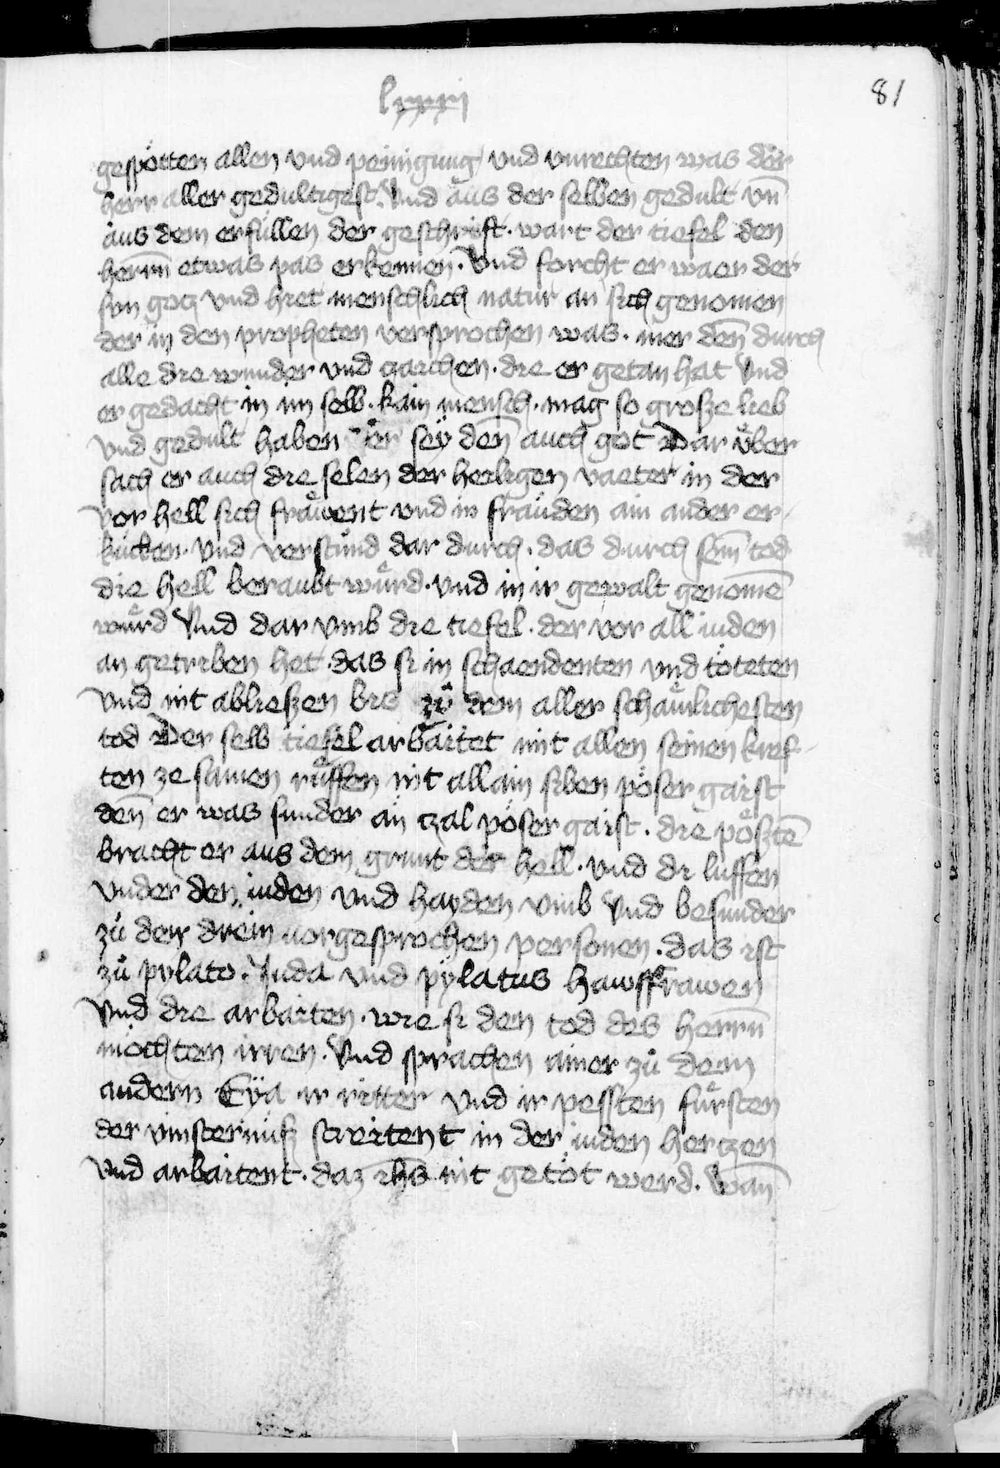 lxxxi
81
gespötten allen vnd peinigung vnd vnrechten was der
herr aller gedultigest. Vnd aus der selben gedult vn̄
aus dem erfüllen der geschrift. wart der tiefel den
herrn̄ etwas pas erkennen. Vnd forcht er waer der
sun gotz vnd hiet menschlich natur an sich genomen
der in den propheten versprochen was. mer den̄ durch
alle die wunder vnd zaichen. die er getan hat Vnd
er gedacht in im selb. kain mensch. mag so grosze lieb
vnd gedult haben er sey den̄ auch got Dar über
sach er auch die selen der heiligen vaeter in der
vor hell sich fräwent vnd in fräuden ain ander er
kücken. vnd verstund dar durch. das durch sein̄ tod
die hell beraubt würd. vnd in ir gewalt genomē
würd Vnd dar vmb die tiefel. der vor all iuden
an getriben het. das si in schaendenten vnd töteten
vnd nit abliessen bis zů dem aller schämlichesten
tod Der selb tiefel arbaitet mit allen seinen kref
ten ze samen rüffen nit allain siben pöser gaist
den̄ er was sunder an zal pöser gaist. die pösztē
bracht er aus dem grunt der hell. vnd di luffen
vnder den iuden vnd hayden vmb Vnd besunder
zů den drein uorgesprochen personen. das ist
zů pylato. Juda vnd pÿlatus hawsffrawen
Vnd die arbaiten. wie si den tod des herrn̄
möchten irren. Vnd sprachen ainer zů dem
andern Eÿa ir ritter vnd ir pessten fürsten
der vinsternüsz streitent in der iuden hertzen
vnd arbaitent. daz ihs̄ nit getöt werd. wan̄